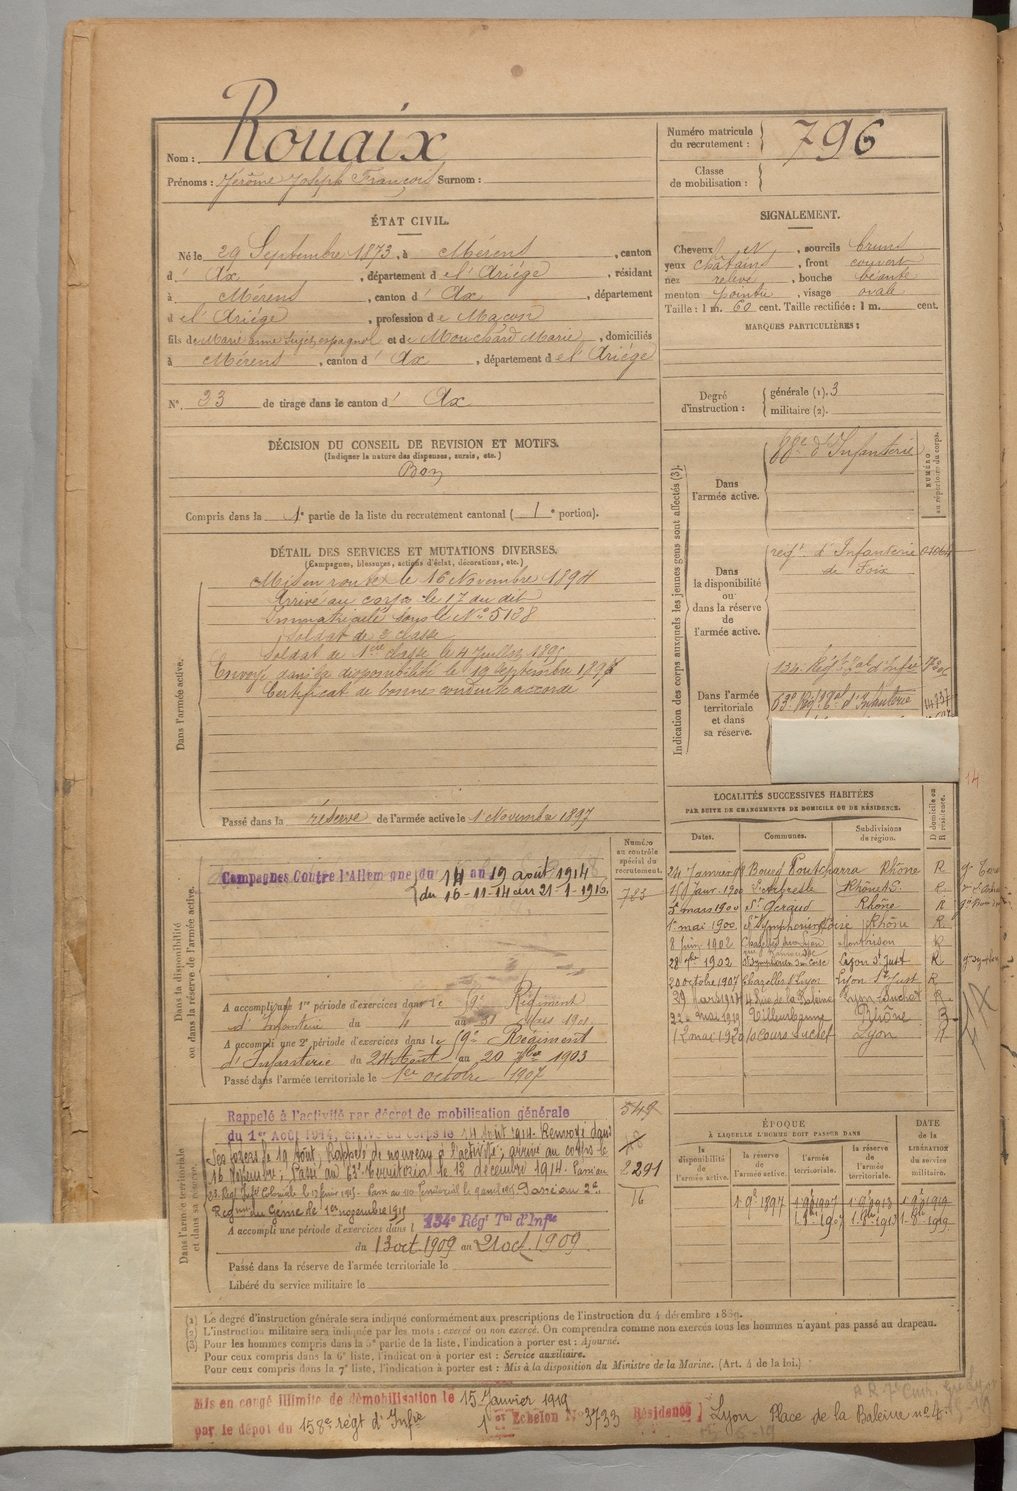 Nom : Rouaix
Prénoms : Jérôme Joseph François Surnom :
Numéro matricule du recrutement : 796
Classe de mobilisation :
ÉTAT CIVIL.
Né le 29 Septembre 1873, à Mérens, canton
d' Ax, département de l'Ariége, résidant
à Mérens, canton d' Ax, département
de l'Ariége, profession de Maçon
fils de Marie anne Sujet espagnol et de Mouchard Marie, domiciliés
à Mérens, canton d' Ax, département de l'Ariége
N° 33 de tirage dans le canton d' Ax
SIGNALEMENT.
Cheveux N, sourcils bruns
yeux châtains, front couvert
nez relevé, bouche béante
menton pointu, visage ovale
Taille : 1 m. 60 cent. Taille rectifiée : 1 m. cent.
MARQUES PARTICULIÈRES :
Degré d'instruction :
générale (1). 3
militaire (2).
DÉCISION DU CONSEIL DE REVISION ET MOTIFS.
(Indiquer la nature des dispenses, sursis, etc.)
Bon
Compris dans la 1e partie de la liste du recrutement cantonal ( 1e portion).
DÉTAIL DES SERVICES ET MUTATIONS DIVERSES.
(Campagnes, blessures, actions d'éclat, décorations, etc.)
Dans l'armée active.
Mis en route le 16 Novembre 1894
Arrivé au corps le 17 du dit
Immatriculé sous le N° 5138
Soldat de 2 classe
Soldat de 1ere classe le 4 Juillet 1895
Envoyé dans la disponibilité le 19 Septembre 1896
Certificat de bonne conduite accordé
Passé dans la réserve de l'armée active le 1 Novembre 1897
Indication des corps auxquels les jeunes gens sont affectés (3).
NUMÉRO au répertoire du corps.
Dans l'armée active.
d'Infanterie
Dans la disponibilité ou dans la réserve de l'armée active.
regt d'Infanterie
de Foix
Dans l'armée territoriale et dans sa réserve.
134. Régt Tal d'Infie
63e Régt Tal d'Infanterie
14
LOCALITÉS SUCCESSIVES HABITÉES
PAR SUITE DE CHANGEMENTS DE DOMICILE OU DE RÉSIDENCE.
Dates. Communes. Subdivisions de région. D domicile ou R résidence.
24 Janvier Pontcharra Rhône R
Janv. 1900 L'Arbresle Rhône R
5 mars 1900 St Rhône R
1e mai 1900 St Symphorien Rhône R
8 Juin 1902 Montbrison R
28 1902 St Symphorien sur Coise Lyon St Just R
20 octobre 1907 Chazelles s/ Lyon Lyon St Just R
4 Rue de la Baleine R
Villeurbanne Rhône R
Lyon R
Dans la disponibilité ou dans la réserve de l'armée active.
Numéro au contrôle spécial du recrutement.
783
Campagnes Contre l'Allemagne du 14 au 19 août 1914
du 16-11-14 au 21-1-1919
A accompli une 1re période d'exercices dans le Régiment
d'Infanterie du 4 au 31 Mars 1901
A accompli une 2e période d'exercices dans le Régiment
d'Infanterie du 24 Août au 20 7bre 1903
Passé dans l'armée territoriale le 1er octobre 1907
Dans l'armée territoriale et dans sa réserve.
549
2291
16
Rappelé à l'activité par décret de mobilisation générale
du 1er Août 1914, arrivé au corps le 14 Août 1914. Renvoyé dans
ses foyers le 19 Août, Rappelé de nouveau à l'activité; arrivé au corps le
16 Novembre; Passé au 63e territorial le 12 décembre 1914. Passé au
Passé au 2e
Regiment du Génie le 1er novembre 1915
A accompli une période d'exercices dans l 134e Régt Tal d'Infie
du 13 oct. 1909 au 21 oct. 1909
Passé dans la réserve de l'armée territoriale le
Libéré du service militaire le
ÉPOQUE
À LAQUELLE L'HOMME DOIT PASSER DANS
la disponibilité de l'armée active.
la réserve de l'armée active.
l'armée territoriale.
la réserve de l'armée territoriale.
DATE de la LIBÉRATION du service militaire.
1 9bre 1897 1 9bre 1907 1 9bre 1913 1 9bre 1919
1 8bre 1907 1-8bre 1913 1-8bre 1919
Le degré d'instruction générale sera indiqué conformément aux prescriptions de l'instruction du 4 décembre 1889.
L'instruction militaire sera indiquée par les mots : exercé ou non exercé. On comprendra comme non exercés tous les hommes n'ayant pas passé au drapeau.
Pour les hommes compris dans la 5e partie de la liste, l'indication à porter est : Ajourné.
Pour ceux compris dans la 6e liste, l'indication à porter est : Service auxiliaire.
Pour ceux compris dans la 7e liste, l'indication à porter est : Mis à la disposition du Ministre de la Marine. (Art. 4 de la loi.)
Mis en congé illimité de démobilisation le 15 Janvier 1919
1er Echelon No 3733 Résidence Lyon Place de la Baleine n° 4.
par le dépot du 158e régt d'Infie